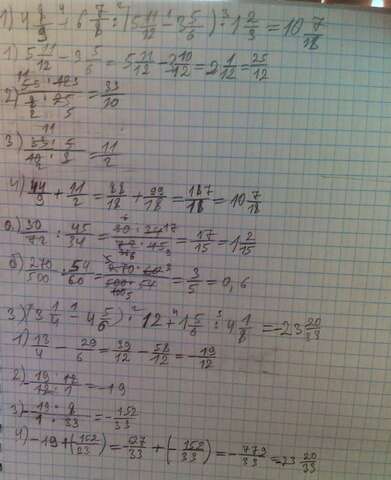 1) 4 8/9 + 6 7/8 : (5 11/12 - 3 5/6) · 1 2/3 = 10 7/18
1) 5 11/12 - 3 5/6 = 5 11/12 - 3 10/12 = 2 1/12 = 25/12
2) = 33/10
3) 33 · 5 / 10 · 3 = 11/2
4) 44/9 + 11/2 = 88/18 + 99/18 = 187/18 = 10 7/18
а) 30/72 : 45/34 = = 17/15 = 1 2/15
б) 270/500 : 54/60 = = 3/5 = 0,6
3) (3 1/4 - 4 5/6) · 12 + 1 5/6 : 4 1/8 = -23 20/33
1) 13/4 - 29/6 = 39/12 - 58/12 = -19/12
2) - 19 · 12 / 12 · 1 = -19
3) - 19 · 8 / 1 · 33 = -152/33
4) -19 + (152/33) = 627/33 + (-152/33) = -779/33 = -23 20/33